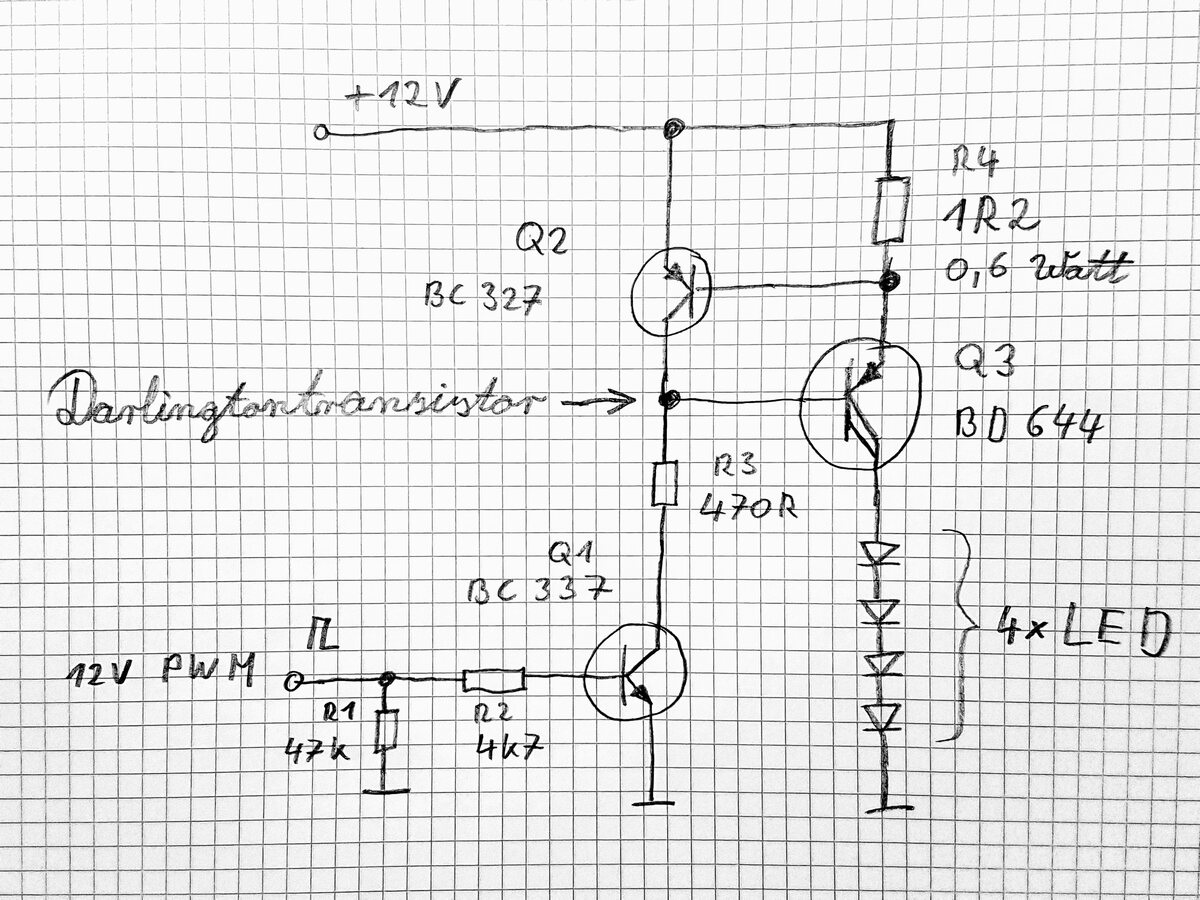 +12V
R4
1R2
0,6 Watt
Q2
BC 327
Q3
BD 644
Darlingtontransistor
R3
470R
Q1
BC 337
4x LED
12V PWM
R1
47k
R2
4k7